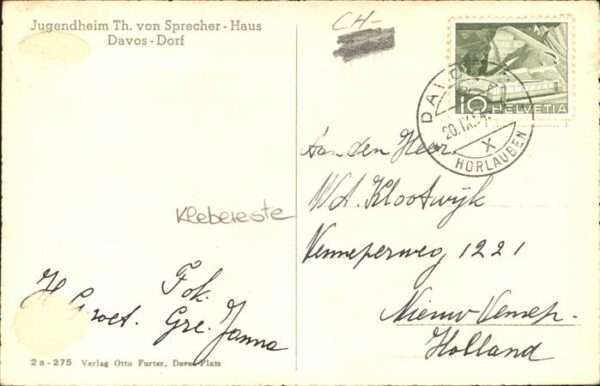 Jugendheim Th. von Sprecher - Haus
Davos - Dorf
CH-
10 HELVETIA
HORLAUBEN
X
Aan den Heer
Klootwijk
Venneperweg 1221
Nieuw-Vennep.
Holland
Klebereste
Fok.
H Groet. Gre. Janna
2a-275 Verlag Otto Furter, Davos-Platz